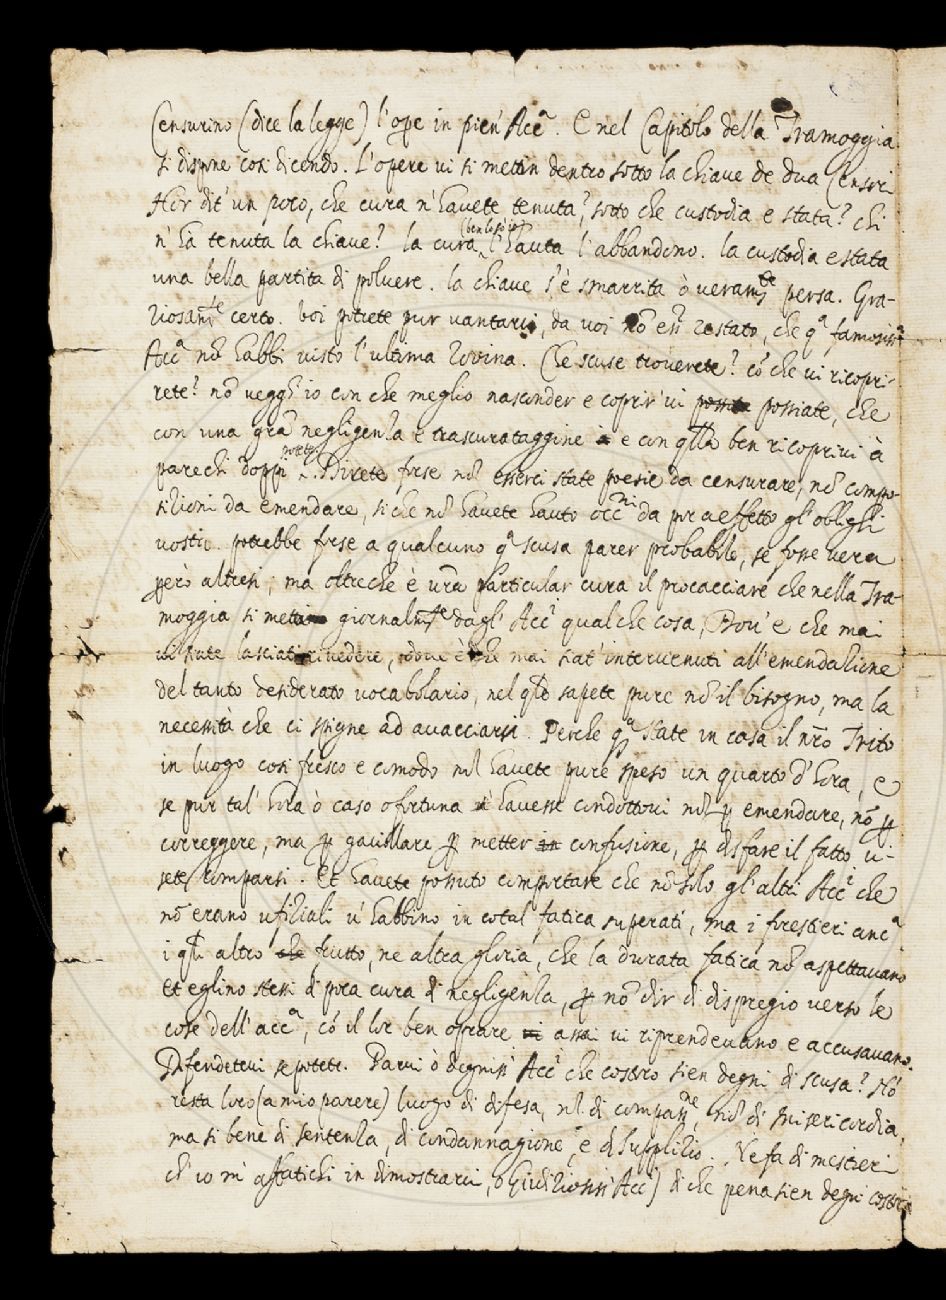 Censurino (dice la legge) l'op̄e in pien' Acc.ª E nel Capitolo della Tramoggia
si dispone così dicendo. L'opere vi si mettin dentro sotto la chiave de dua Censori
Hor dit' un poco, che cura n'havete tenuta? sotto che custodia e stata? chi
n'ha tenuta la chiave? la cura l'havuta l'abbandono. la custodia e stata
una bella partita di polvere. la chiave s'è smarrita ò veram.te persa. Gra-
ziosam.te certo. Voi potete pur vantarvi, da voi nō essr̄ restato, che q.ª famosiss.ª
Acc.ª nō habbi visto l'ultima rovina. Che scuse troverete? cō che vi ricopri-
rete? nō vegg'io con che meglio nasconder e coprir vi possiate, che
con una grā negligenza e trascurataggine e con q̄lla ben ricoprivi à
parechi doppi. Direte forse nō esserci state poesie da censurare, nō compo-
sizioni da emendare, si che nō havete hauto occ.ni da por a effetto gl'oblighi
vostri. potrebbe forse a qualcuno q.ª scusa parer probabile, se fosse vera
però altresi; ma oltreche è vr̄a particular cura il procacciare che nella Tra-
moggia si metta giornalm.te dagl'Acc.i qualche cosa, Dov'e che mai
vi siate lasciati rivedere, dove è che mai siat'intervenuti all'emendazione
del tanto desiderato vocabolario, nel q̄le sapete pure nō il bisogno, ma la
necessità che ci spigne ad avacciarsi. Perche q.ª state in casa il nr̄o Trito
in luogo così fresco e comodo nō havete pure speso un quarto d'hora, e
se pur tal' hora ò caso o fortuna v'havesse condottovi nō p̱ emendare, nō p̱
correggere, ma p̱ gavillare p̱ metter confusione, p̱ disfare il fatto vi-
sete comparsi. Et havete possuto comportare che nō solo gl'altri Acc.i che
nō erano ufiziali v'habbino in cotal fatica superati, ma i forestieri anc.ª
i q̄li altro frutto, ne altra gloria, che la durata fatica nō aspettavano
Et eglino stessi di poca cura di negligenza, p̱ nō dir di dispregio verso le
cose dell'acc.ª, cō il lor ben oprare assai vi riprendevano e accusavano.
Difendetevi se potete. Parvi ò degniss.i Acc.i che costoro sien degni di scusa? Nō
resta loro (a mio parere) luogo di difesa, nō di compass.ne, nō di misericordia,
ma si bene di sentenza, di condannagione, e di supplizio. Ne fa di mestieri
ch'io m'affatichi in dimostrarvi, o Giudiziosiss.i Acc.i) di che pena sien degni costoro